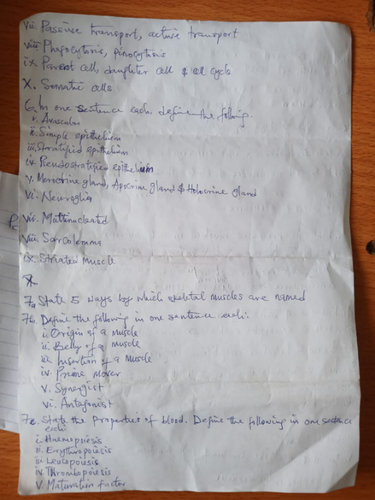 vii. Passive transport, active transport
viii Phagocytosis, pinocytosis
ix. Parent cell, daughter cell & cell cycle
X. Somatic cells
6. In one sentence each define the following
i. Avascular
ii. Simple epithelium
iii. Stratified epithelium
iv. Pseudostratified epithelium
v. Merocrine gland, Apocrine gland & Holocrine gland
vi. Neuroglia
vii. Multinucleated
viii. Sarcolemma
ix. Striated muscle
X
7a State 5 ways by which skeletal muscles are named
7b. Define the following in one sentence each:
i. Origin of a muscle
ii. Belly of a muscle
iii. Insertion of a muscle
iv. Prime mover
v. Synergist
vi. Antagonist
7c. State the properties of blood. Define the following in one sentence
each:
i. Haemopoiesis
ii. Erythropoiesis
iii. Leucopoiesis
iv. Thrombopoiesis
V. Maturation factor